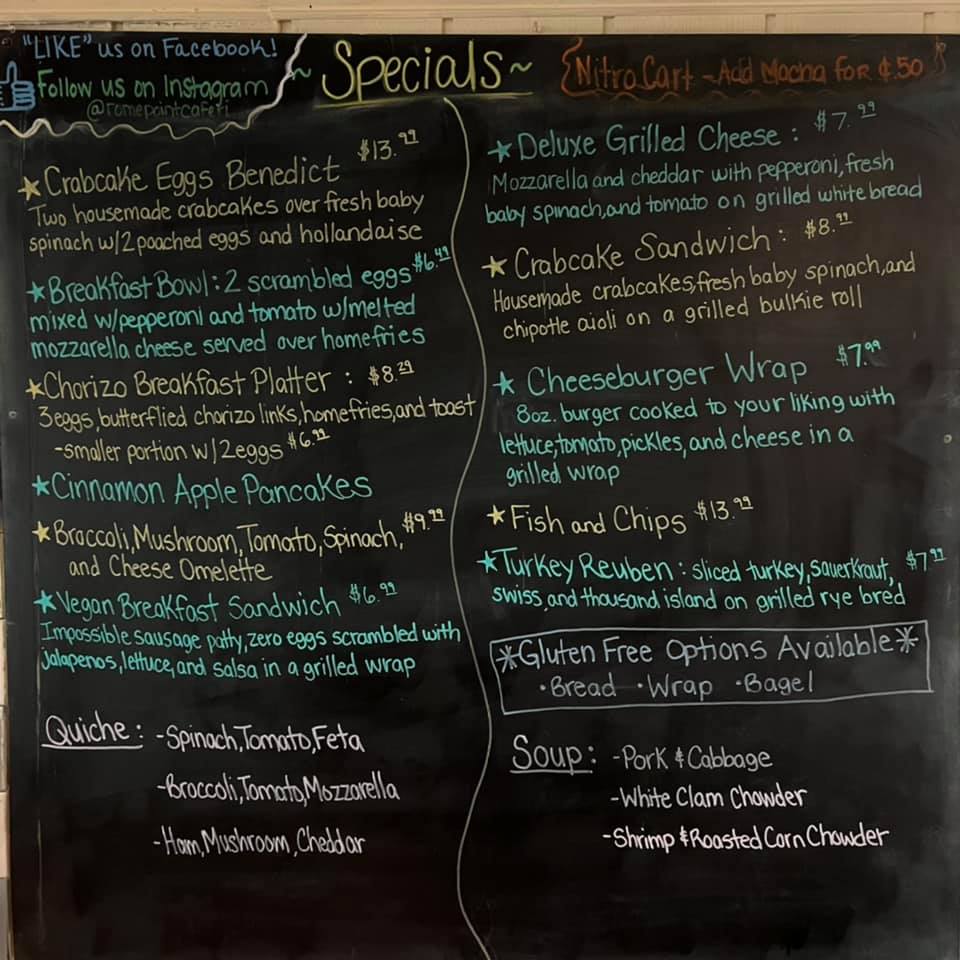 "LIKE" us on Facebook!
Follow us on Instagram
@romepointcafeti
~ Specials ~
{Nitro Cart - Add Mocha for ¢.50}
★Crabcake Eggs Benedict $13.99
Two housemade crabcakes over fresh baby
spinach w/2 poached eggs and hollandaise
★Breakfast Bowl: 2 scrambled eggs $6.49
mixed w/pepperoni and tomato w/melted
mozzarella cheese served over homefries
★Chorizo Breakfast Platter: $8.29
3 eggs, butterflied chorizo links, homefries, and toast
-smaller portion w/2 eggs $6.99
★Cinnamon Apple Pancakes
★Broccoli, Mushroom, Tomato, Spinach, $9.99
and Cheese Omelette
★Vegan Breakfast Sandwich $6.99
Impossible sausage patty, zero eggs scrambled with
jalapenos, lettuce, and salsa in a grilled wrap
Quiche: -Spinach, Tomato, Feta
-Broccoli, Tomato, Mozzarella
-Ham, Mushroom, Cheddar
★Deluxe Grilled Cheese: $7.99
Mozzarella and cheddar with pepperoni, fresh
baby spinach, and tomato on grilled white bread
★Crabcake Sandwich: $8.99
Housemade crabcakes, fresh baby spinach, and
chipotle aioli on a grilled bulkie roll
★Cheeseburger Wrap $7.99
8oz. burger cooked to your liking with
lettuce, tomato, pickles, and cheese in a
grilled wrap
★Fish and Chips $13.99
★Turkey Reuben: sliced turkey, sauerkraut, $7.99
swiss, and thousand island on grilled rye bred
*Gluten Free Options Available*
•Bread •Wrap •Bagel
Soup: -Pork & Cabbage
-White Clam Chowder
-Shrimp & Roasted Corn Chowder